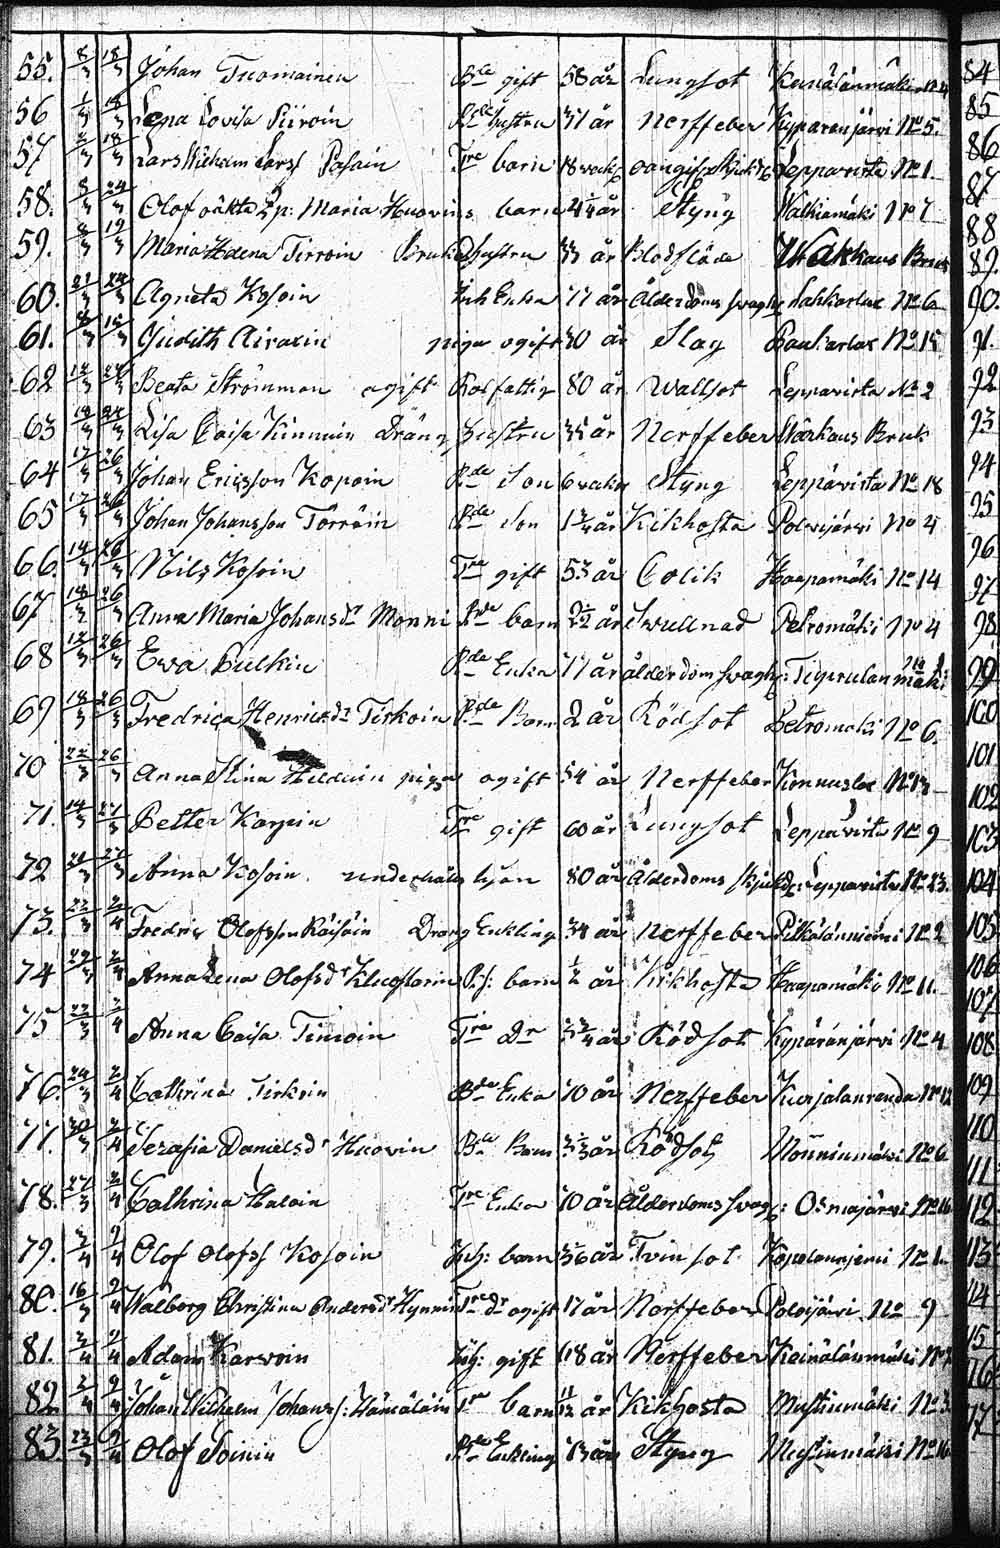 55. 8/3 18/3 Johan Tuomainen Bde gift 58 år Lungsot Kuvälänmäki No 4
56 1/3 18/3 Lena Lovisa Piiroin Bde hustru 31 år Nerffeber Kyparenjärvi No 5.
57 2/3 18/3 Lars Wilhelm Larss Pasain Tre barn 18 veck oangif Sjukd Leppävirta No 1
58. 8/3 24/3 Olof oäkta Sp: Maria Huovins barn 4 1/4 år Styng Walkiamäki No 7
59. 8/3 19/3 Maria Helena Tirroin Bruksd hustru 33 år Blodflöde Warkaus Bruk
60. 22/3 24/3 Agneta Kosoin Inh Enka 77 år Ålderdoms svagh Sahkarlax No 6
61. 15/3 Judith Airaxin piga ogift 30 år Slag Paukarlax No 15
62 12/3 24/3 Beata Strömman ogift Rotfattig 80 år Wattsot Leppävirta No 2
63 14/3 24/3 Lisa Caisa Kinnuin Dräng hustru 35 år Nerffeber Warkaus Bruk
64 17/3 26/3 Johan Ericsson Kopoin Bde Son 6 veckor Styng Leppävirta No 18
65 17/3 26/3 Johan Johansson Törröin Bde Son 1 3/4 år Kikhosta Polvijärvi No 4
66. 14/3 26/3 Nils Kosoin Tre gift 53 år Colik Haapamäki No 14
67 18/3 26/3 Anna Maria Johansdr Monni Bde barn 2 1/2 år Swullnad Petromäki No 4
68 12/3 26/3 Ewa Pulkin Bde Enka 77 år ålderdom svagh: Tiprulanmäki
69 18/3 26/3 Fredrica Henricsdr Tirkoin Bde Barn 2 år Rödsot Petromäki No 6.
70 22/3 26/3 Anna Stina Hiltuin piga ogift 54 år Nerffeber Konnuslax No 13
71. 14/3 27/3 Petter Karpin Tre gift 60 år Lungsot Leppävirta No 9
72 21/3 27/3 Anna Kosoin underhålls hjon 80 år Ålderdoms skjukd Leppävirta No 23.
73. 22/3 2/4 Fredric Olofsson Räisäin Dräng Enkling 34 år Nerffeber Pitkälänniemi No 2
74 29/3 2/4 Anna Lena Olofsdr Kluoffarin Ps: barn 1/2 år Kikhosta Haapamäki No 11.
75 22/3 2/4 Anna Caisa Timoin Tre Dr 3 3/4 år Rödsot Kypäränjärvi No 4
76. 24/3 2/4 Cathrina Tirkoin Bde Enka 70 år Nerffeber Kurjalanranda No 12
77. 30/3 2/4 Serafia Danielsdr Huovin Bde Barn 3 2/3 år Rödsot Mönninmäki No 6
78. 27/3 2/4 Cathrina Haloin Tre Enka 70 år Ålderdoms svagh: Osmajärvi No 16
79. 2/4 9/4 Olof Olofss Kosoin Inh: barn 3/26 år Tvinsot Kopolanniemi No 1.
80. 16/3 9/4 Walborg Christina Andersdr Hynnin Tre dr ogift 17 år Nerffeber Polvijärvi No 9
81. 2/4 9/4 Adam Karvoin Inh: gift 48 år Nerffeber Keinälänmäki No
82 2/4 9/4 Johan Wilhelm Johanss: Hämäläin Tre barn 11/12 år Kikhosta Mustinmäki No 3
83. 23/3 9/4 Olof Soinin Bde Enkling 73 år Styng Mustinmäki No 16
84
85
86
87
88
89.
90.
91.
92
93
94
95
96
97
98
99
100
101
102
103
104
105
106
107
108
109
110
111
112
113
114
15
16
17